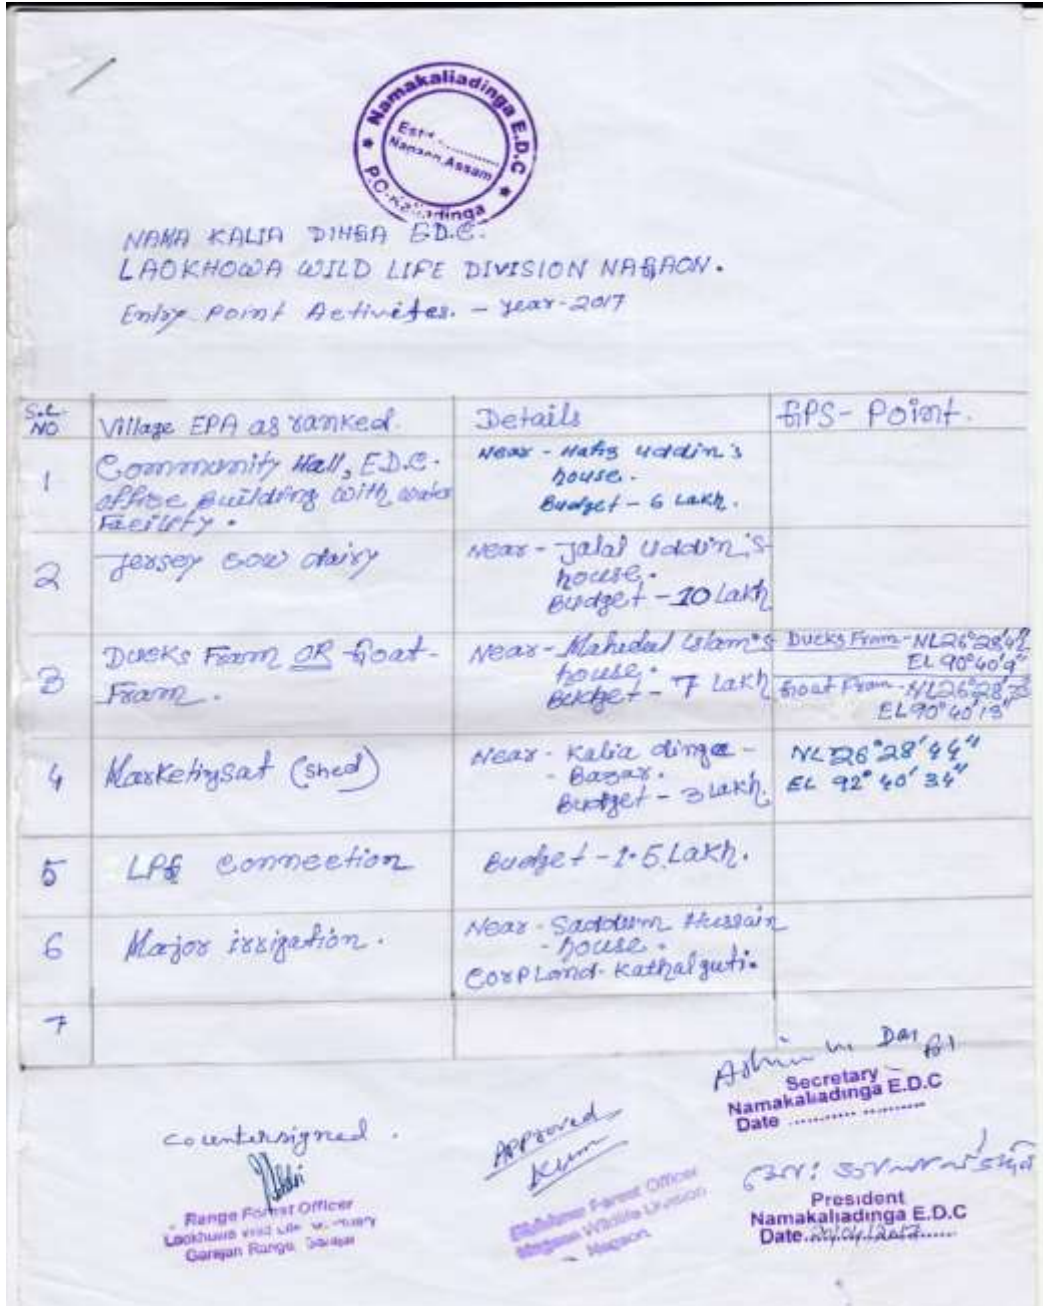 ★ Namakaliadinga E.D.C ★
P.C-Kaliadinga
Nagaon, Assam
NAMA KALIA DINGA E.D.C.
LAOKHOWA WILD LIFE DIVISION NAGAON.
Entry Point Activites. - year-2017
S.L. NO
Village EPA as ranked.
Details
GPS-Point.
1
Community Hall, E.D.C.
office Building with water
Facility.
Near - Hafiz Uddin's
house.
Budget - 6 Lakh.
2
Jersey cow dairy
Near - Jalal Uddin's
house.
Budget - 10 Lakh
3
Ducks Fram OR Goat-
Fram.
Near - Mahedul Islam's
house.
Budget - 7 Lakh
Ducks Fram - NL 26°28'
EL 90°40'9"
Goat Fram - NL 26°28'
EL 90°40'13"
4
Marketingsat (shed)
Near - Kalia dinga -
- Bazar.
Budget - 3 Lakh.
NL 26°28'44"
EL 92°40'34"
5
LPG connection
Budget - 1.5 Lakh.
6
Major irrigation.
Near - Saddum Hussain
- house.
Corp Land - Kathalguti.
7
Secretary
Namakaliadinga E.D.C
Date ...........
Countersigned.
Range Forest Officer
Laokhowa Wild Life
Garajan Range,
Approved
Divisional Forest Officer
Nagaon Wildlife Division
Nagaon
President
Namakaliadinga E.D.C
Date